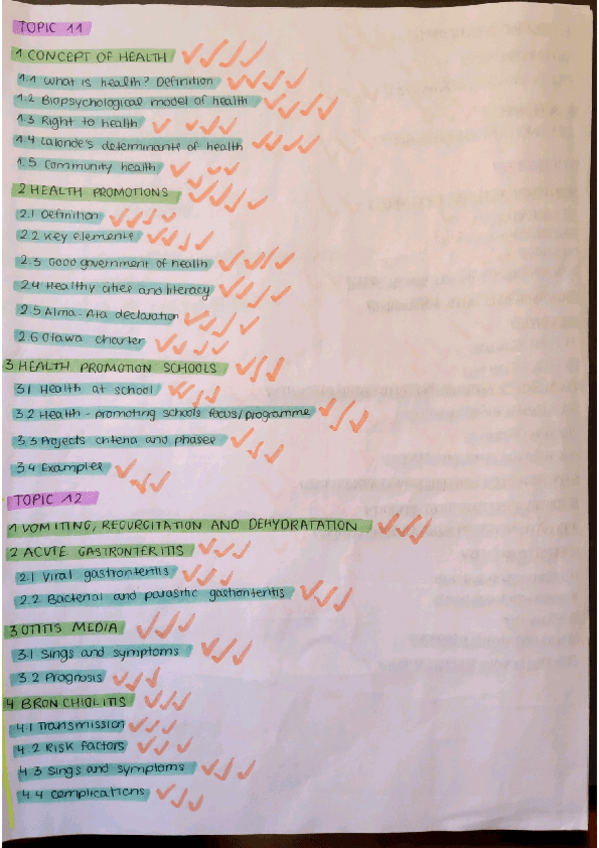 TOPIC 11
1 CONCEPT OF HEALTH
1.1 What is health? Definition
1.2 Biopsychological model of health
1.3 Right to health
1.4 Lalonde's determinants of health
1.5 Community health
2 HEALTH PROMOTIONS
2.1 Definition
2.2 Key elements
2.3 Good government of health
2.4 Healthy cities and literacy
2.5 Alma-Ata declaration
2.6 Otawa charter
3 HEALTH PROMOTION SCHOOLS
3.1 Health at school
3.2 Health-promoting schools focus/programme
3.3 Projects criteria and phases
3.4 Examples
TOPIC 12
1 VOMITING, REGURGITATION AND DEHYDRATATION
2 ACUTE GASTRONTERITIS
2.1 Viral gastronteritis
2.2 Bacterial and parasitic gastronteritis
3 OTITIS MEDIA
3.1 Sings and symptoms
3.2 Prognosis
4 BRONCHIOLITIS
4.1 Transmission
4.2 Risk factors
4.3 Sings and symptoms
4.4 Complications